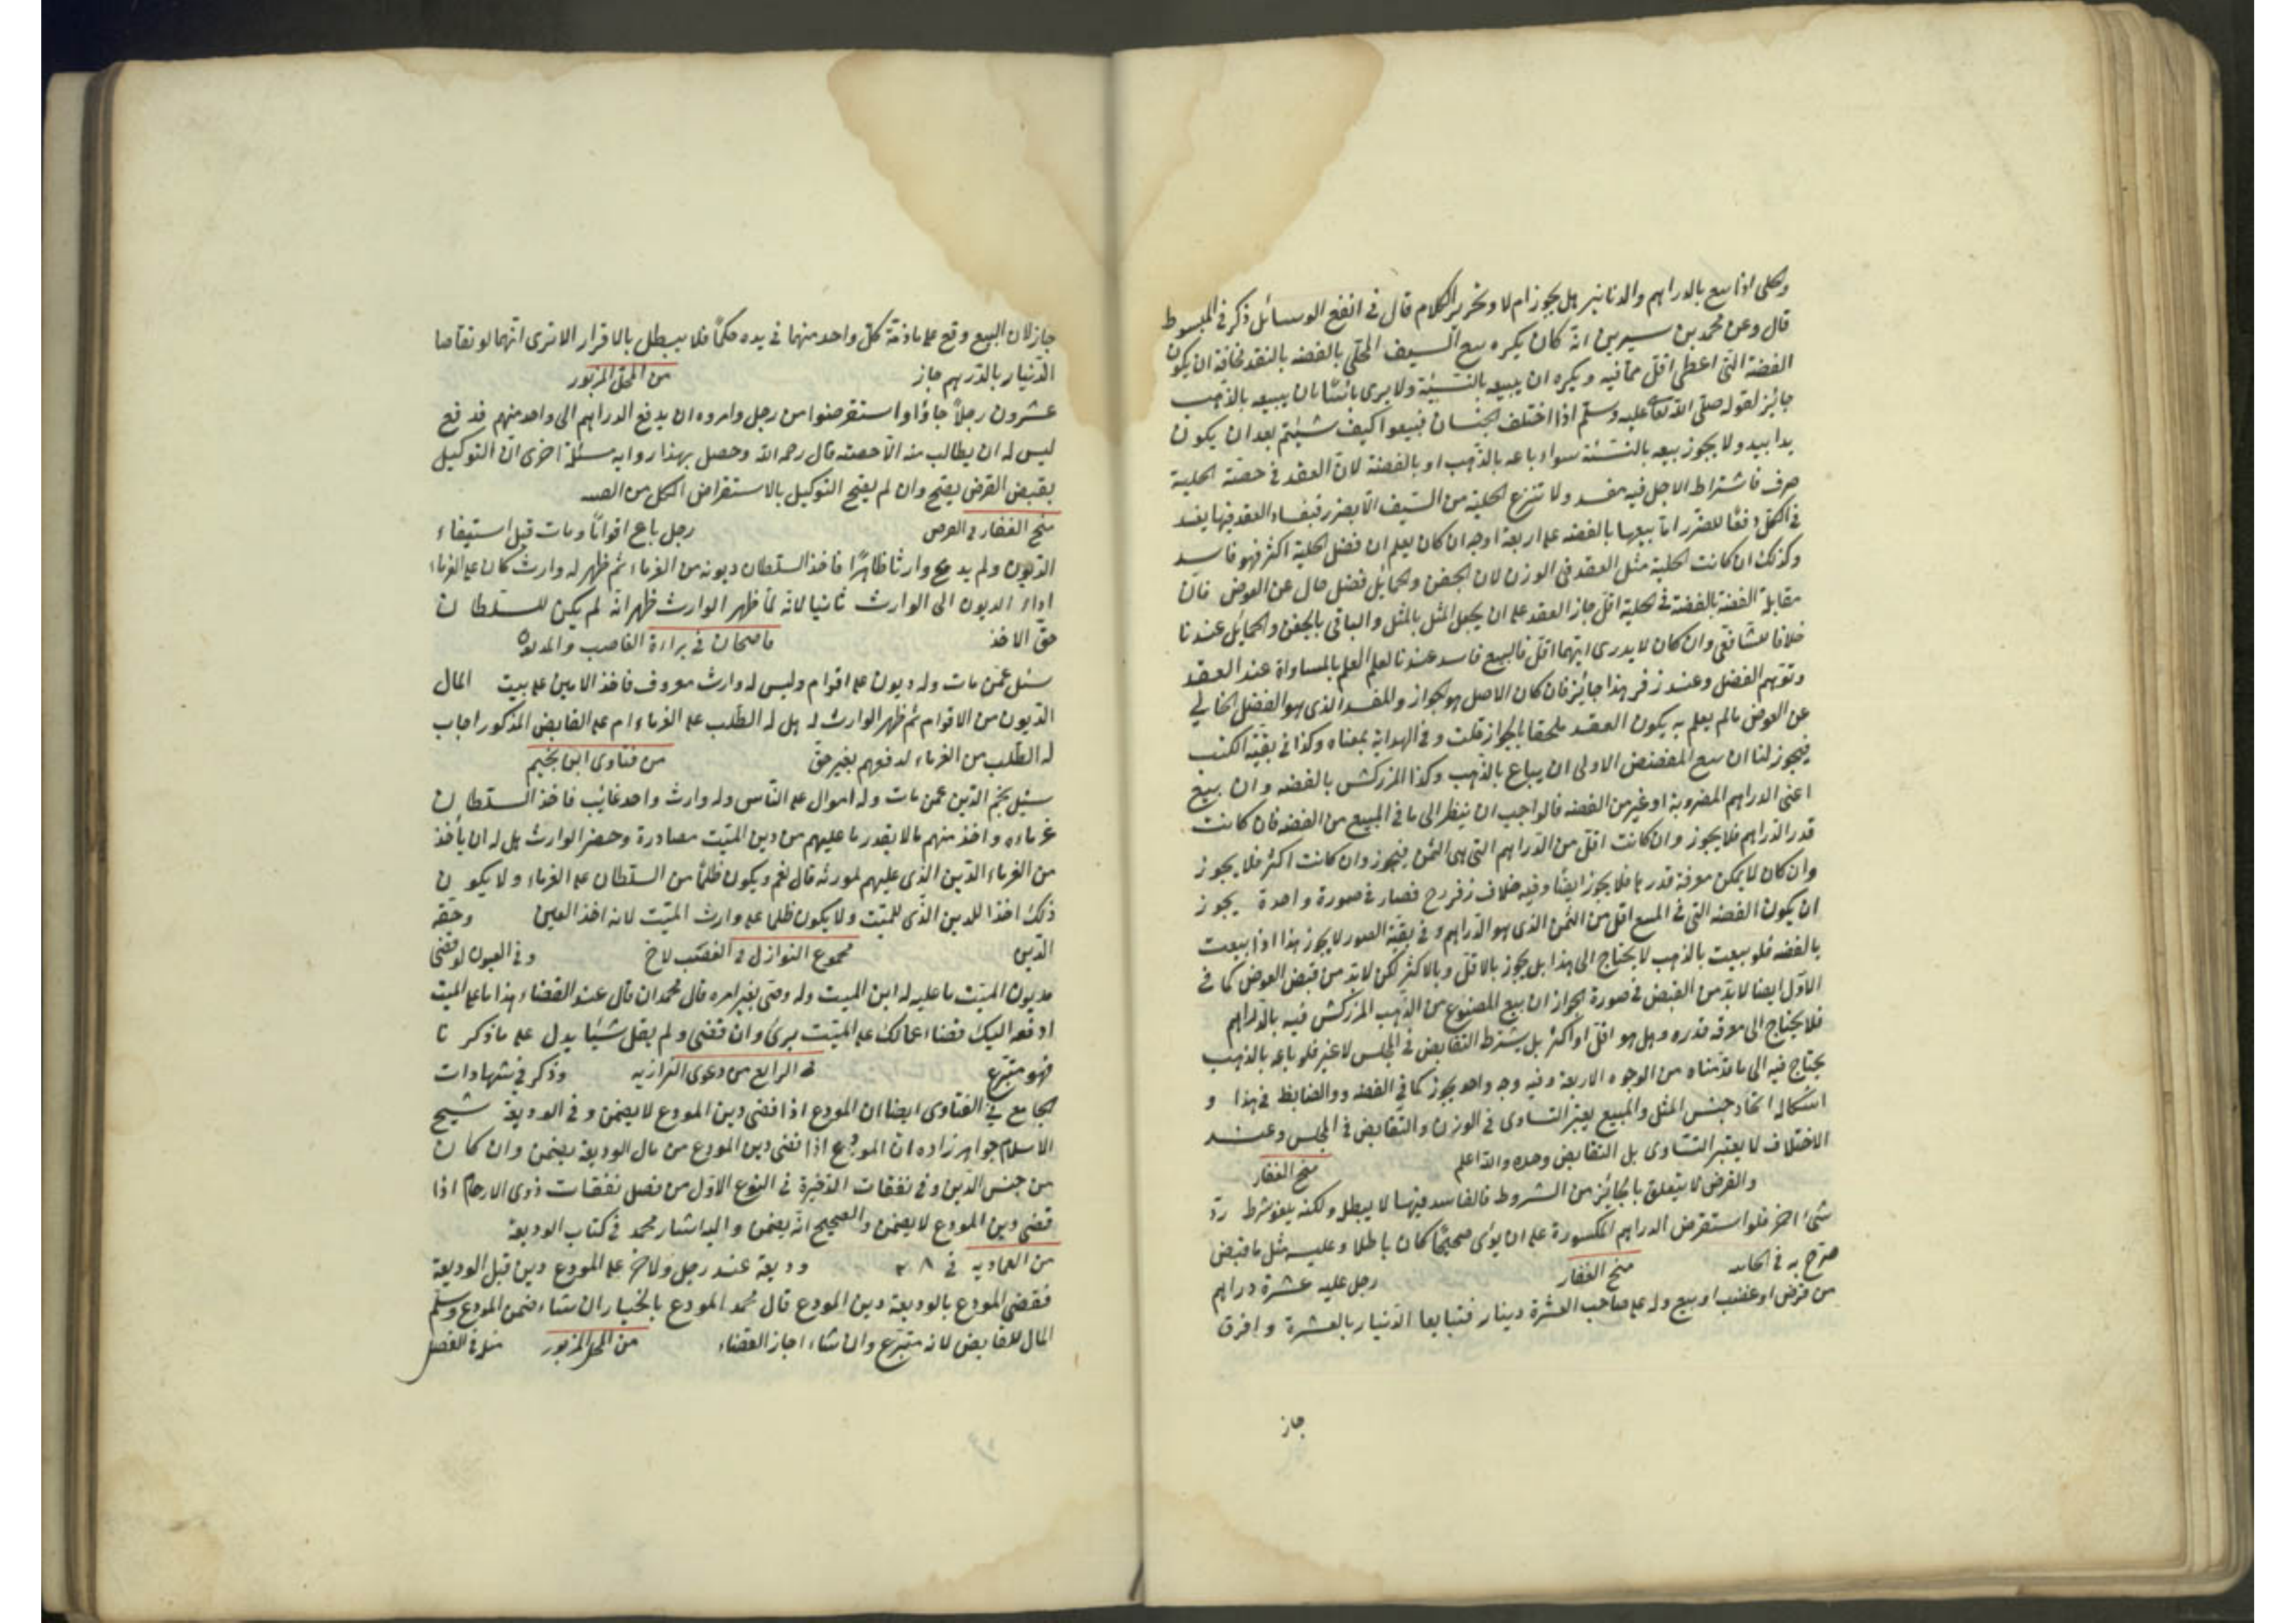 والحلي اذا بيع بالدراهم والدنانير هل يجوز ام لا وتحرير الكلام قال في انفع الوسائل ذكر في المبسوط
قال وعن محمد بن سيرين انه كان يكره بيع السيف المحلى بالفضه بالنقد مخافة ان يكون
الفضة التي اعطى اقل مما فيه ويكره ان يبيعه بالنسيئة ولا يرى بائسًا بان يبيعه بالذهب
جائز لقوله صلى الله تعالى عليه وسلم اذا اختلف الجنسان فبيعوا كيف شيئتم بعد ان يكون
يدا بيد ولا يجوز بيعه بالنسئة سواء باعه بالذهب او بالفضة لان العقد في حصة الحلية
صرف فاشتراط الاجل فيه مفسد ولا تنزع الحلية من السيف الا بضرر فبفساد العقد فيها يفسد
في الكل دفعًا للضرر اما بيعها بالفضه على اربعة اوجه ان كان يعلم ان فضل الحلية اكثر فهو فاسد
وكذلك ان كانت الحلية مثل العقد في الوزن لان الجفن والحمايل فضل خال عن العوض فان
مقابلة الفضة بالفضة في الحلية اقل جاز العقد على ان يجعل المثل بالمثل والباقي بالجفن والحمايل عندنا
خلافا للشافعي وان كان لا يدرى ايهما اقل فالبيع فاسد عندنا لعلم العلم بالمساواة عند العقد
وتوهم الفضل وعند زفر هذا جائز فان كان الاصل هو الجواز والمفسد الذي هو الفضل الخالي
عن العوض مالم يعلم به يكون العقد ملحقا بالجواز قلت وفي الهداية بمعناه وكذا في بقية الكتب
فيجوز لنا ان بيع المفضض الاولى ان يباع بالذهب وكذا المزركش بالفضه وان بيع
اعني الدراهم المضروبة او غير من الفضه فالواجب ان ينظر الى ما في المبيع من الفضه فان كانت
قدر الدراهم فلا يجوز وان كانت اقل من الدراهم التي هي الثمن فيجوز وان كانت اكثر فلا يجوز
وان كان لا يمكن معرفة قدرها فلا يجوز ايضًا وفيه خلاف زفر رح فصار في صورة واحدة يجوز
ان يكون الفضه التي في المبيع اقل من الثمن الذي هو الدراهم وفي بقية الصور لا يجوز هذا اذا بيعت
بالفضه فلو بيعت بالذهب لا يحتاج الى هذا بل يجوز بالاقل وبالاكثر لكن لابد من قبض العوض كما في
الاول ايضا لابد من القبض في صورة الجواز ان بيع المصنوع من الذهب المزركش فيه بالدراهم
فلا يحتاج الى معرفة قدره وهل هو اقل او اكثر بل يشترط التقابض في المجلس لا غير فلو باعه بالذهب
يحتاج فيه الى ما قدمناه من الوجوه الاربعة وفيه وجه واحد يجوز كما في الفضه والضابط في هذا و
اشكاله اتحاد جنس المثل والمبيع يعتبر التساوى في الوزن والتقابض في المجلس وعند
الاختلاف لا يعتبر التساوى بل التقابض وحده والله اعلم منح الغفار
والقرض لا يتعلق بالجائز من الشروط فالفاسد فيها لا يبطل ولكنه يلغو شرط رد
شيئا اخر فلو استقرض الدراهم المكسورة على ان يؤدى صحيحًا كان باطلا وعليه مثل ما قبض
صرح به في منح الغفار رجل عليه عشرة دراهم
من قرض او غصب او بيع وله على صاحب العشرة دينار فتبايعا الدنيار بالعشرة وافرق
جاز
جاز لان البيع وقع على ما ذمة كل واحد منهما في يده حكمًا فلا يبطل بالاقرار الا ترى انهما لو تقاصا
الدنيار بالدرهم جاز من المحل المزبور
عشرون رجلًا جاؤا واستقرضوا من رجل وامروه ان يدفع الدراهم الى واحد منهم فدفع
ليس له ان يطالب منه الا حصته قال رحمه الله وحصل بهذا رواية مسئلة اخرى ان التوكيل
بقبض القرض يصح وان لم يصح التوكيل بالاستقراض الكل من
منح الغفار في القرض رجل باع اقوامًا ومات قبل استيفاء
الديون ولم يدع وارثا ظاهرًا فاخذ السلطان ديونه من الغرماء ثم ظهر له وارث كان على الغرماء
اداء الديون الى الوارث ثانيا لانه لما ظهر الوارث ظهر انه لم يكن للسلطان
حق الاخذ قاضيخان في براءة الغاصب والمديون
سئل عمن مات وله ديون على اقوام وليس له وارث معروف فاخذ الامين على بيت المال
الديون من الاقوام ثم ظهر الوارث له هل له الطلب على الغرماء ام على القابض المذكور اجاب
له الطلب من الغرماء لدفعهم بغير حق من فتاوى ابن نجيم
سئيل نجم الدين عمن مات وله اموال على الناس وله وارث واحد غايب فاخذ السلطان
غرماءه واخذ منهم مالا بقدر ما عليهم من دين الميت مصادرة وحضر الوارث هل له ان ياخذ
من الغرماء الدين الذي عليهم لمورثه قال نعم ويكون ظلمًا من السلطان على الغرماء ولا يكون
ذلك اخذا للدين الذي للميت ولا يكون ظلما على وارث الميت لانه اخذ العين وحقه
الدين مجموع النوازل في الغصب وفي العيون لو قضى
مديون الميت ما عليه له ابن الميت وله وصى بغير امره قال محمد ان قال عند القضاء هذا ما على الميت
ادفعه اليك قضاء عما لك على الميت برئ وان قضى ولم يقل شيئا يدل على ما ذكرنا
فهو متبرع في الرابع من دعوى البزازيه وذكر في شهادات
الجامع في الفتاوى ايضا ان المودع اذا قضى دين المودع لا يضمن وفي الوديعة شيخ
الاسلام خواهر زاده ان المودع اذا قضى دين المودع من مال الوديعة يضمن وان كان
من جنس الدين وفي نفقات الذخيرة في النوع الاول من فصل نفقات ذوى الارحام اذا
قضى دين المودع لا يضمن والصحيح انه يضمن واليه اشار محمد في كتاب الوديعة
من العماديه في ٣٨ وديعة عند رجل ولاخر على المودع دين قبل الوديعة
فقضى المودع بالوديعة دين المودع قال محمد المودع بالخيار ان شاء ضمن المودع وسلم
المال للقابض لانه متبرع وان شاء اجاز القضاء من المحل المزبور